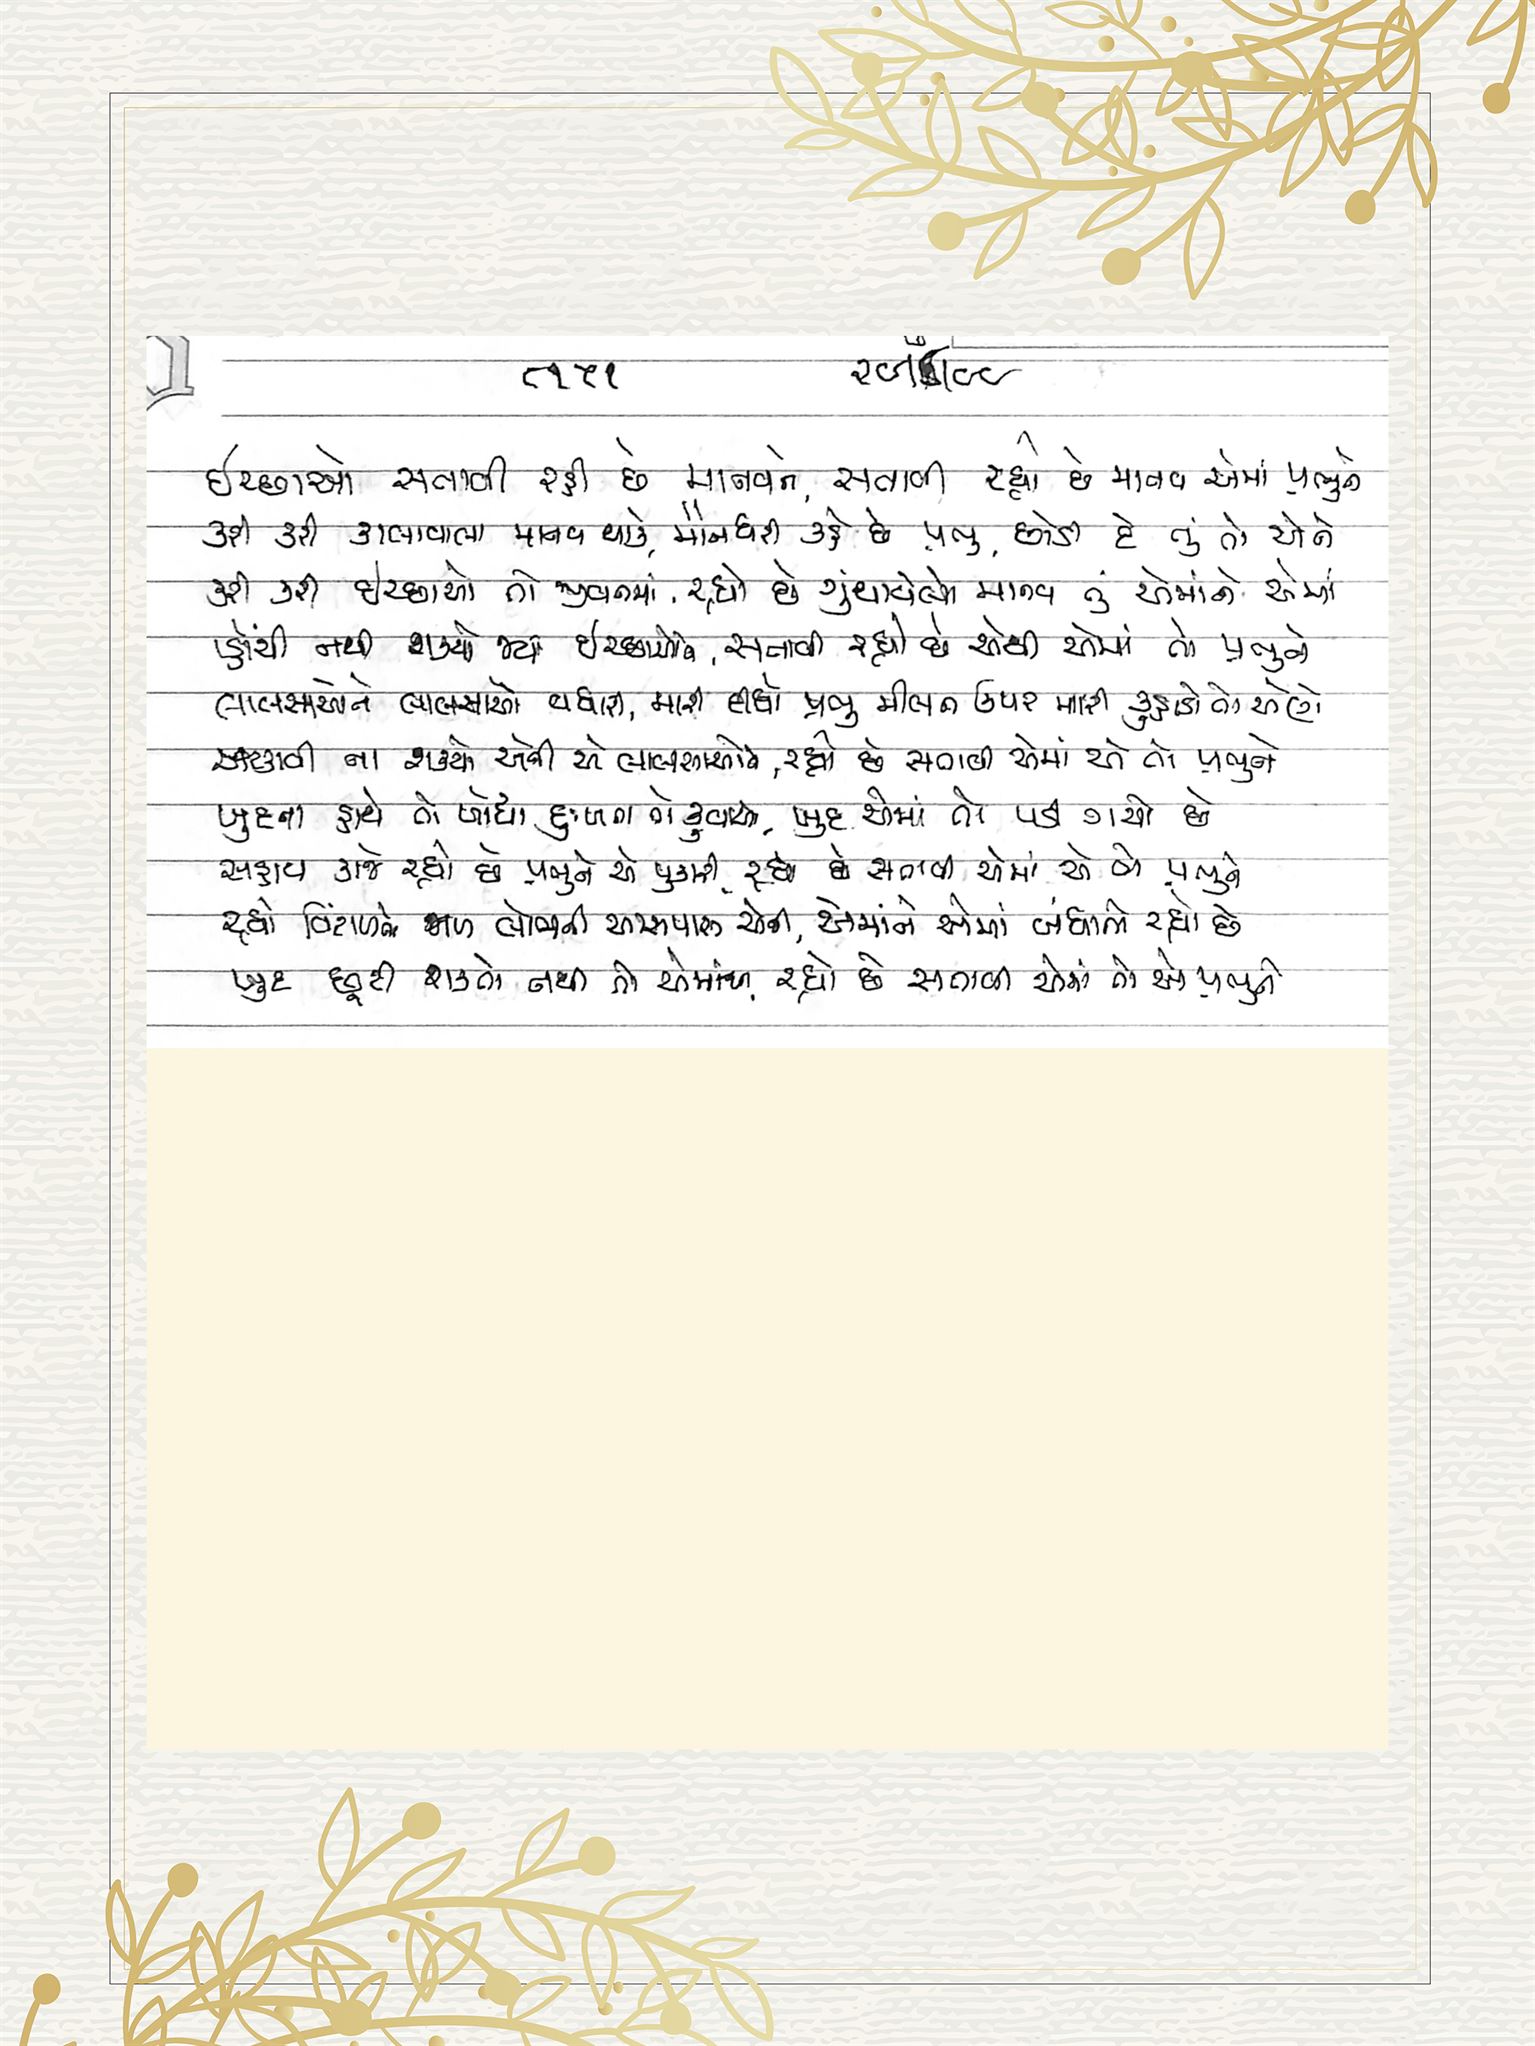 ઈચ્છાઓ સતાવી રહી છે માનવને, સતાવી રહ્યો છે માનવ એમાં પ્રભુને
કરી કરી કાલાવાલા માનવ થાકે, મૌનધરી કહે છે પ્રભુ, છોડી દે તું તો એને
કરી કરી ઈચ્છાઓ તો જીવનમાં, રહ્યો છે ગુંથાયેલો માનવ તું એમાંને એમાં
પ્હોંચી નથી શક્યો જ્યાં ઈચ્છાઓને, સતાવી રહ્યો છે એથી એમાં તો પ્રભુને
લાલસાઓને લાલસાઓ વધારી, મારી દીધો પ્રભુ મીલન ઉપર મારી કુહાડો તો એણે
અટકાવી ના શક્યો એની એ લાલસાઓને, રહ્યો છે સતાવી એમાં એ તો પ્રભુને
ખુદના હાથે તો ખોદ્યા દુઃખના તો કુવાઓ, ખુદ એમાં તો પડી ગયો છે
સહાય કાજે રહ્યો છે પ્રભુને એ પુકારી, રહ્યો છે સતાવી એમાં એ તો પ્રભુને
રહ્યો વિંટાળતો જાળ લોભની આસપાસ એની, એમાંને એમાં બંધાતો રહ્યો છે
ખુદ છૂટી શકતો નથી તો એમાંથી, રહ્યો છે સતાવી એમાં તો એ પ્રભુને